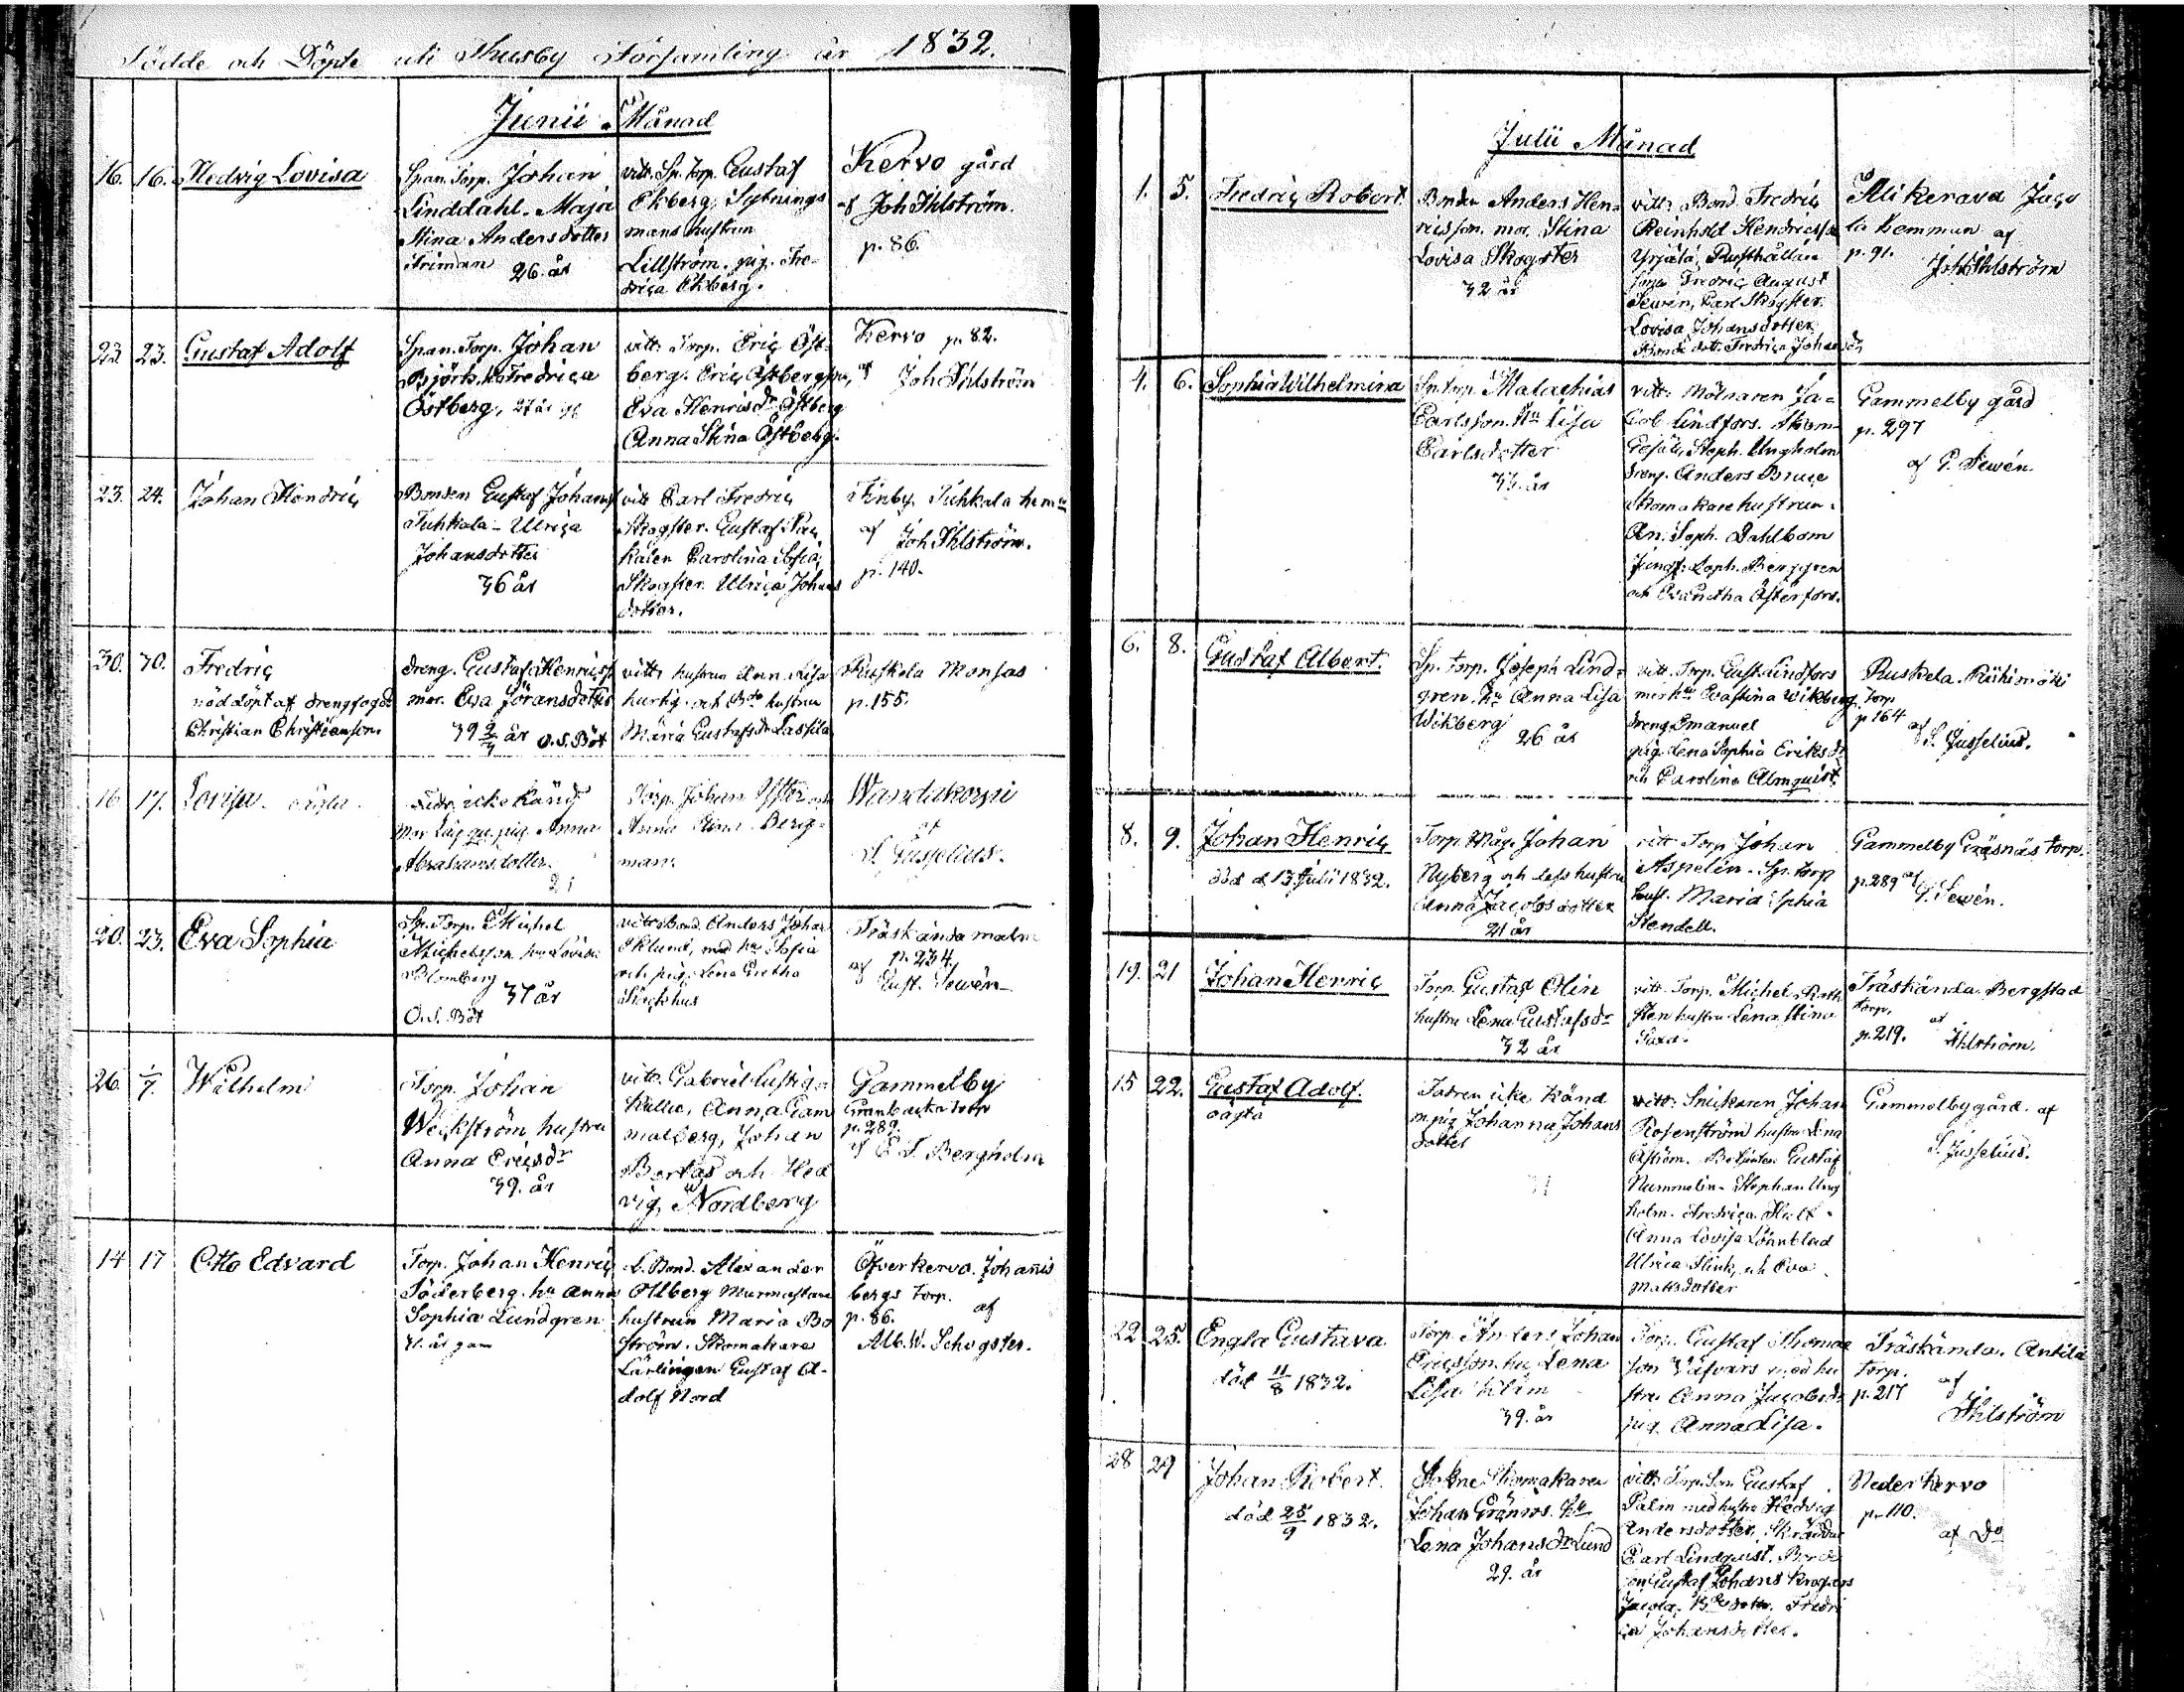 Födde och Döpte uti Thusby Församling år 1832.
Junii Månad
16. 16. Hedvig Lovisa
Span. Torp. Johan
Linddahl. Maja
Stina Andersdotter
26. år
vittn. Sp. torp. Gustaf
Ekberg, Sytnings
mans hustrun
Lillström. pig. Fre-
drica Ekberg.
Kervo gård
af Joh Ihlström.
p. 86.
23. 23. Gustaf Adolf
Span. Torp. Johan
Björk. Hu Fredrica
Östberg, 27 år
vittn. Torp. Eric Öst-
berg. Eric Östbergson,
Eva Henricsdr Östberg
Anna Stina Östberg.
Kervo p. 82.
af Joh Ihlström
23. 24. Johan Hendric
Bonden Gustaf Johans
Tuhkala - Ulrica
Johansdotter
36 år
vittn Carl Fredric
Skogster. Gustaf
Carolina Sofia
Skogster. Ulrica Johans
dotter.
Finby. Tuhkala hem
af Joh Ihlström.
p. 140.
30. 30. Fredric
nöddöpt af drengfogd
Christian Christianson
dreng. Gustaf Henricss
mor. Eva Göransdotter
39 3/4 år O. S. Böt
vittn hustrun Ann Lisa
hurtig och hustrun
Maria Gustafsdr Lassila
Ruskela Monsas
p. 155.
16 17. Lovisa oägta
Fadr. icke känd
Mor pig. Anna
Abrahamsdotter.
21
Torp. Johan och
Anna Stina Berg-
man.
Wandakorpi
af
S. Gusselius.
20. 23. Eva Sophia
Sp. Torp. Michel
Michelsson hu Lovisa
Blomberg
37 år
O. S. Böt
vittn Bond. Anders Johan
Eklund, med hu Sofia
och pig. Lena Gretha
Träskända malm
p. 234.
af Gust. Sewén
26. 1/7. Wilhelm
Torp. Johan
Weckström hustru
Anna Ericsdr
39. år
vittn. Gabriel Lustig
Kallio, Anna Gam
malberg, Johan
Bertas och Hed
vig, Nordberg
Gammelby
Granbacka Torp
p. 289.
af C. J. Bergholm
14 17 Otto Edvard
Torp. Johan Henric
Söderberg. hu Anna
Sophia Lundgren
31. år gam
v. Bond. Alexander
Ollberg Murmastare
hustrun Maria Bo
ström. Skomakare
Lärlingen Gustaf A-
dolf Nord
Öfverkervo. Johannis
bergs Torp.
p. 86. af
Alb. W. Schogster.
Julii Månad
1. 5. Fredric Robert.
Bonden Anders Hen-
ricsson. mor. Stina
Lovisa Skogster
32 år
vittn. Bond. Fredric
Reinhold Hendricsson
Yrjälä, Rusthållare
sonen Fredric August
Sewén, Carl Skogster.
Lovisa Johansdotter
Bonde dott. Fredrica Johansdr
Alikerava Jaco
la Kommun af
p. 91. Joh Ihlström
4. 6. Sophia Wilhelmina
Sp. torp. Malachias
Carlsson. Hu Lisa
Carlsdotter
33. år
vittn. Mölnaren Ja-
cob Lindfors. Skom
Gesäll, Steph. Ungholm
dreng. Anders Bruce
Skomakare hustrun.
An. Soph. Dahlbom
Jungf. Soph. Berggren
och Eva Gretha Österfors.
Gammelby gård
p. 297
af G. Sewén.
6. 8. Gustaf Albert.
Sp. torp. Joseph Lind-
gren. hu Anna Lisa
Wikberg
26 år
vittn. Torp. Gust. Lindfors
med hu Eva Stina Wikberg
dreng Emanuel
pig. Lena Sophia Eriksdr
och Carolina Almquist.
Ruskela. Riihimäki
Torp
p 164 af
S. Gusselius.
8. 9. Johan Henric
död d 13 Julii 1832.
Torp Måg. Johan
Nyberg och dess hustru
Anna Jacobsdotter
21 år
vittn Torp Johan
Aspelin. Sp. torp
hust. Maria Sophia
Stendell.
Gammelby Gräsnäs torp.
p. 289 af
G. Sewén.
19. 21 Johan Henric
Torp. Gustaf Olin
hustru Lena Gustafsdr
32 år
vittn. Torp. Michel Roth
sten hustru Lena Stina
Träskända. Bergstad
torp.
p. 219. af
Ihlström.
15 22. Gustaf Adolf.
oägta
Fadren icke känd
m. pig Johanna Johans
dotter
31
vittn. Snickaren Johan
Rosenström hustru Lena
Åström. Betjenten Gustaf
Nummelin. Stephan Ung
holm. Fredrica Hult
Anna Lovisa Lönnblad
Ulrica Flink, och Eva
Mattsdotter
Gammelby gård. af
S. Gusselius.
22 25. Engla Gustava
död 11/8 1832.
Torp. Anders Johan
Ericsson. hu Lena
Lisa Klim
39. år
Torp. Gustaf Thomas
son med hu
stru Anna Jacobsdr
pig. Anna Lisa.
Träskända. Antila
torp.
p. 217 af
Ihlström
28 29 Johan Robert.
död 25/9 1832.
Sokne Skomakaren
Johan Grönros. Hu
Lena Johansdr Lund
29. år
vittn. Torp. Son Gustaf
Palm med hustru Hedvig
Andersdotter, Skräddar
Carl Lindquist. Bonde
son Gustaf Johans Krogars
Jacola. dotter. Fredri
ca Johansdotter.
Nederkervo
p. 110.
af Do